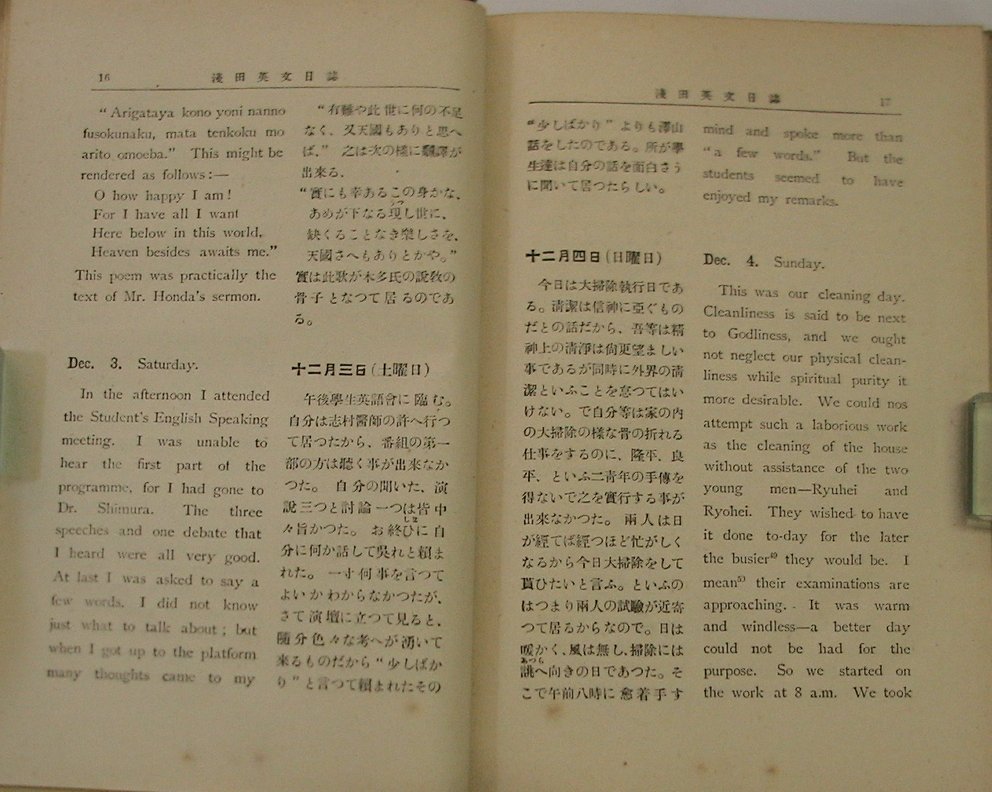 16
淺田英文日誌
“Arigataya kono yoni nanno
fusokunaku, mata tenkoku mo
arito omoeba.” This might be
rendered as follows:—
O how happy I am!
For I have all I want
Here below in this world,
Heaven besides awaits me.”
This poem was practically the
text of Mr. Honda's sermon.
Dec. 3. Saturday.
In the afternoon I attended
the Student's English Speaking
meeting. I was unable to
hear the first part of the
programme, for I had gone to
Dr. Shimura. The three
speeches and one debate that
I heard were all very good.
At last I was asked to say a
few words. I did not know
just what to talk about; but
when I got up to the platform
many thoughts came to my
“有難や此世に何の不足
なく、又天國もありと思へ
ば。” 之は次の樣に飜譯が
出來る、
“實にも幸あるこの身かな、
あめが下なる現し世に、
缺くることなき樂しさを、
天國さへもありとかや。”
實は此歌が本多氏の說敎の
骨子となつて居るのであ
る。
十二月三日(土曜日)
午後學生英語會に臨む。
自分は志村醫師の許へ行つ
て居つたから、番組の第一
部の方は聽く事が出來なか
つた。自分の聞いた、演
說三つと討論一つは皆中
々旨かつた。お終ひに自
分に何か話して吳れと賴ま
れた。一寸何事を言つて
よいかわからなかつたが、
さて演壇に立つて見ると、
隨分色々な考へが湧いて
來るものだから“少しばか
り”と言つて賴まれたその
淺田英文日誌
17
“少しばかり”よりも澤山
話をしたのである。所が學
生達は自分の話を面白さう
に聞いて居つたらしい。
十二月四日(日曜日)
今日は大掃除執行日であ
る。淸潔は信神に亞ぐもの
だとの話だから、吾等は精
神上の淸淨は尙更望ましい
事であるが同時に外界の淸
潔といふことを怠つてはい
けない。で自分等は家の內
の大掃除の樣な骨の折れる
仕事をするのに、隆平、良
平、といふ二靑年の手傳を
得ないで之を實行する事が
出來なかつた。兩人は日
が經てば經つほど忙がしく
なるから今日大掃除をして
貰ひたいと言ふ。といふの
はつまり兩人の試驗が近寄
つて居るからなので。日は
暖かく、風は無し、掃除には
誂へ向きの日であつた。そ
こで午前八時に愈着手す
mind and spoke more than
“a few words.” But the
students seemed to have
enjoyed my remarks.
Dec. 4. Sunday.
This was our cleaning day.
Cleanliness is said to be next
to Godliness, and we ought
not neglect our physical clean-
liness while spiritual purity it
more desirable. We could nos
attempt such a laborious work
as the cleaning of the house
without assistance of the two
young men—Ryuhei and
Ryohei. They wished to have
it done to-day for the later
the busier⁴⁾ they would be. I
mean⁵⁾ their examinations are
approaching. It was warm
and windless—a better day
could not be had for the
purpose. So we started on
the work at 8 a.m. We took